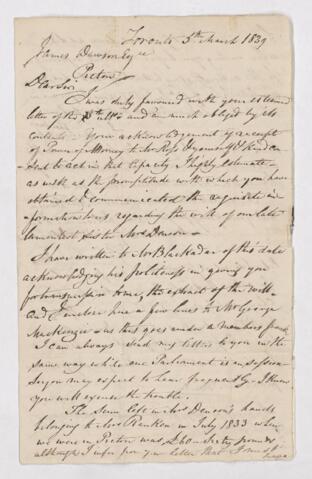 Toronto 5th March 1839
James Dawson Esqre
Pictou
Dear Sir
I was duly favoured with your esteemed
letter of the ulto and am much obliged by its
contents - Your acknowledgement of receipt
of Power of Attorney to Mr Ross & yourself & kind con-
sent to act in that capacity I highly estimate -
as well as the promptitude with which you have
obtained & communicated the requisite in-
formation to us regarding the will of our late
lamented Sister Mrs Denoon -
I have written to Mr Blackadar of this date
acknowledging his politeness in giving you
for transmission to me, the extract of the will -
and I enclose here a few lines to Mr George
MacKenzie - as this goes under a members frank
I can always send my letters to you in the
same way while our Parliament is in session
so you may expect to hear frequently - I know
you will excuse the trouble.
The Sum left in Mrs Denoon's hands
belonging to Mrs Rankin in July 1833 when
we were in Pictou was Sixty pounds
although I infer from your letter that I must